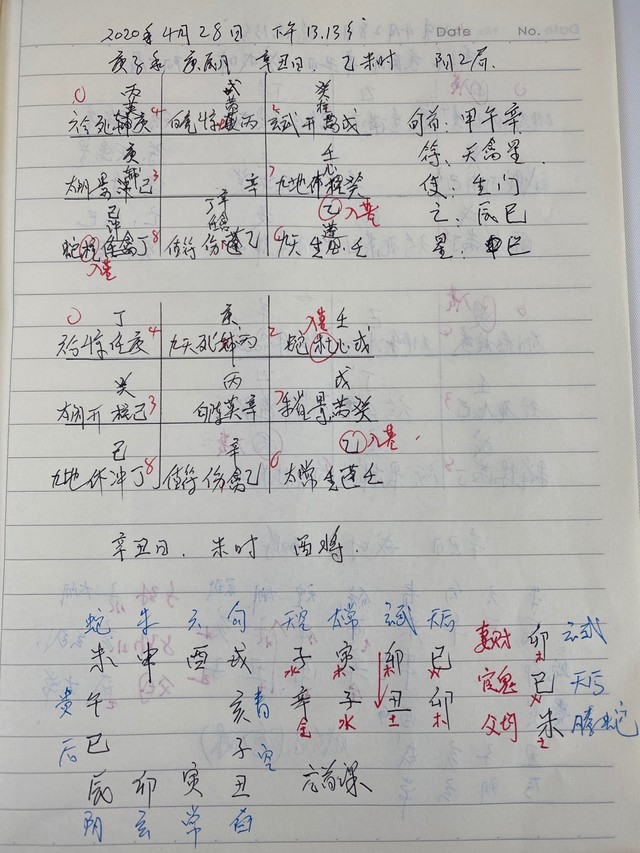 Date No.
2020年4月28日 下午13.13分
庚子年 庚辰月 辛丑日 乙未时 阴2局
0 丙 戊 癸
六合死辅庚 4 白虎惊英丙 2 玄武开芮戊 旬首:甲午辛
庚 壬 符:天禽星
太阴景 己 3 辛 7 九地休柱癸 使:生门
己 丁 辛 乙 入墓 之:辰巳
蛇杜任禽丁 8 值符伤蓬乙 6 九天生心壬 星:巳
入墓
0 丁 庚 入墓 壬
六合惊任庚 4 九天死辅丙 2 蛇杜心戊
癸 丙 戊
太阴开柱己 3 勾陈英辛 7 朱雀景芮癸
己 辛 乙 入墓
九地休冲丁 8 值符伤禽乙 6 太常生蓬壬
辛丑日. 未时 酉将.
蛇 朱 六 勾 天空 太常 玄武 天后
未 申 酉 戌 子 寅 卯 巳 妻财 卯 玄武
水 木 木 火 木
贵 午 亥 青 辛 子 丑 卯 官鬼 巳 天后
金 水 土 木 火
后 巳 子 空 父母 未 螣蛇
土
辰 卯 寅 丑 元首课
阴 玄 常 白